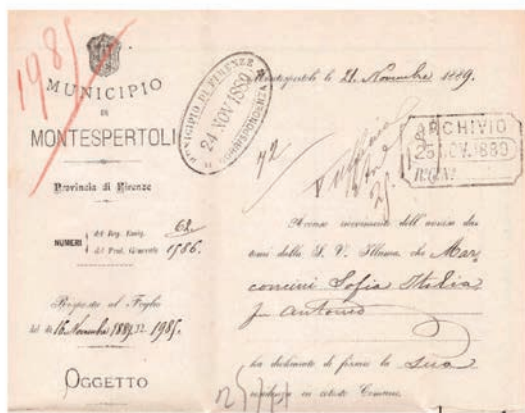 1985
MUNICIPIO
DI
MONTESPERTOLI
Provincia di Firenze
NUMERI
del Reg. Emig. 68.
del Prot. Generale 1586.
Risposta al Foglio
del dì 16 Novembre 1889 N. 1985.
OGGETTO
MUNICIPIO DI FIRENZE
24 NOV 1889
CORRISPONDENZA
Montespertoli lì 21. Novembre 1889.
ARCHIVIO
25 NOV. 1889
Accuso ricevimento dell'avviso da-
tomi dalla S. V. Illma, che Mar
concini Sofia Italia
fu Antonio
ha dichiarato di fissare la sua
residenza in cotesto Comune.